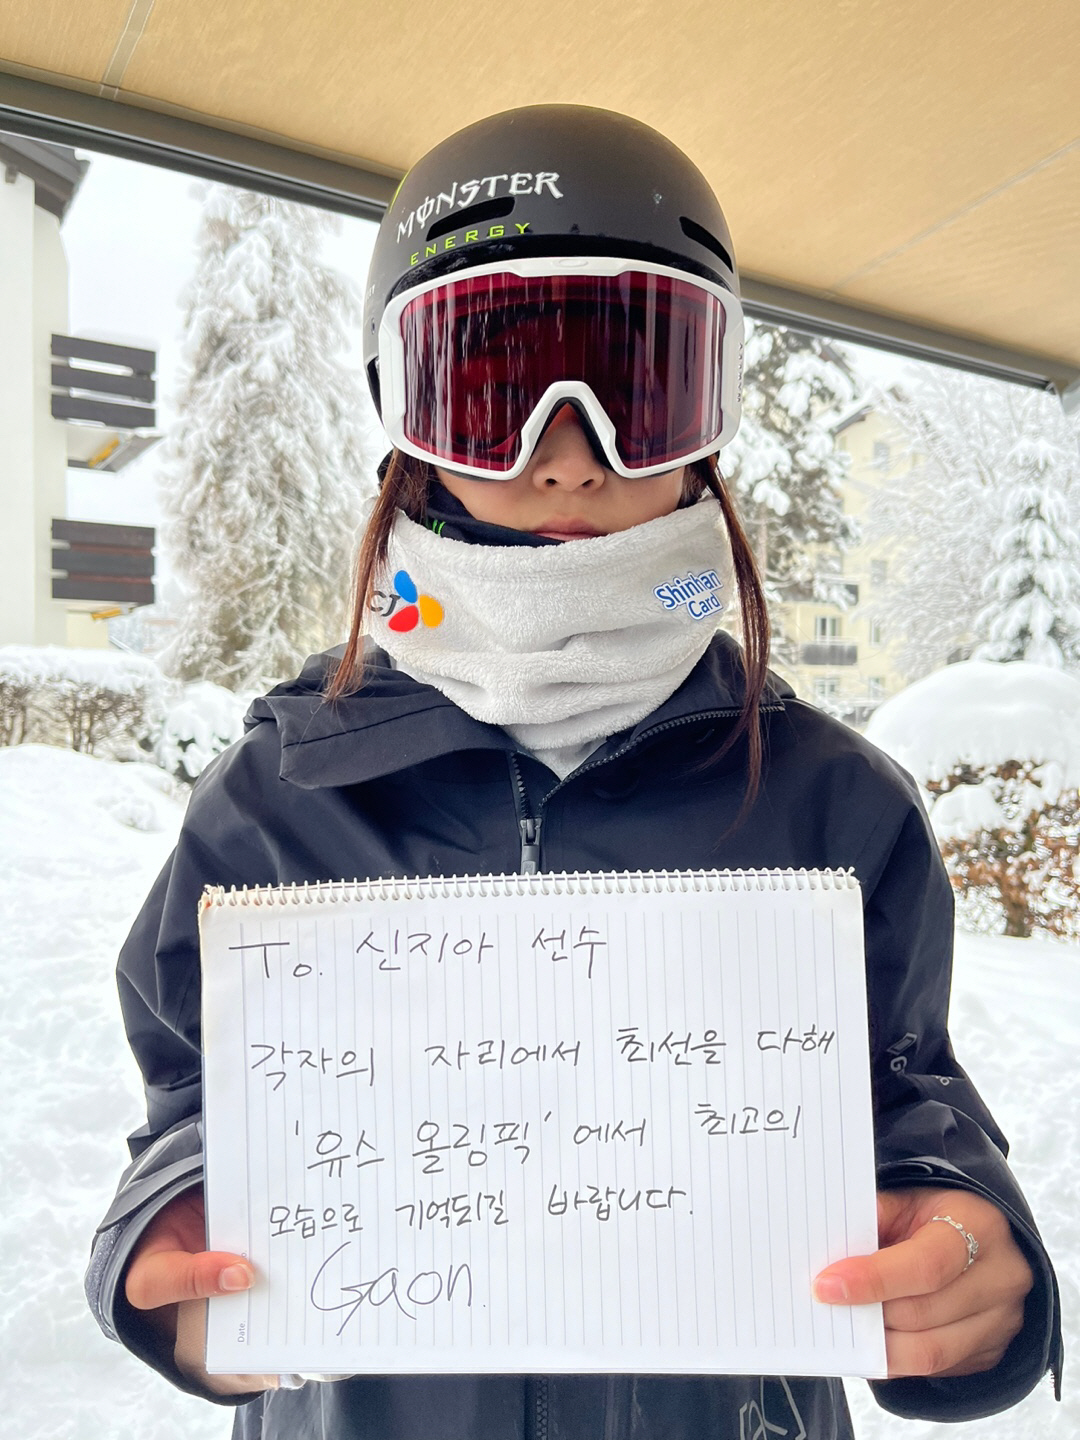 MONSTER
ENERGY
CJ
Shinhan
Card
To. 신지아 선수
각자의 자리에서 최선을 다해
'유스 올림픽' 에서 최고의
모습으로 기억되길 바랍니다.
Gaon.
Date